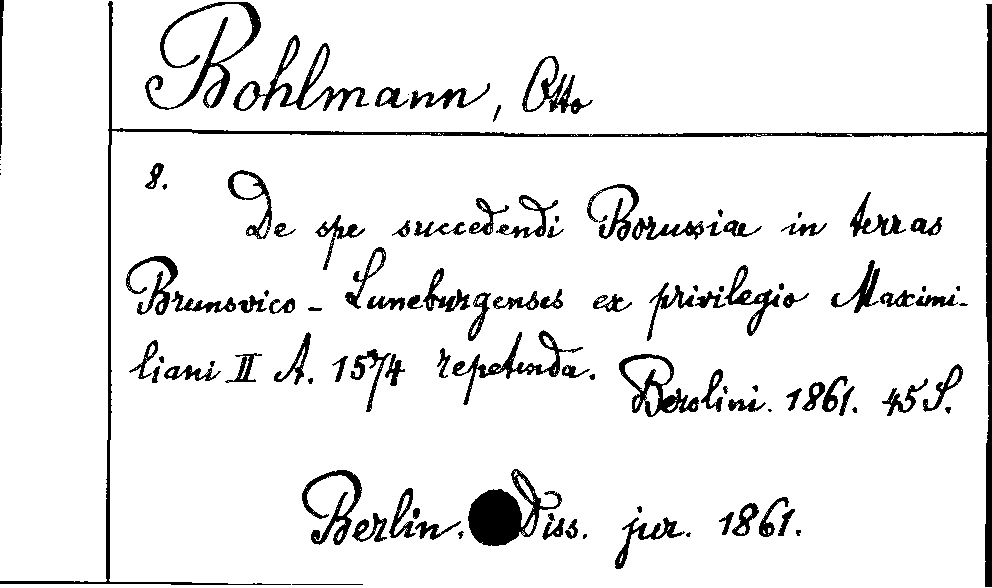 Bohlmann, Otto
8.
De spe succedendi Borussiae in terras
Brunsvico-Luneburgenses ex privilegio Maximi-
liani II A. 1574 repetenda.
Berolini. 1861. 45 S.
Berlin. Diss. jur. 1861.